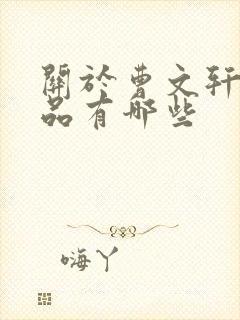 關於曹文軒
品有哪些
嗨丫